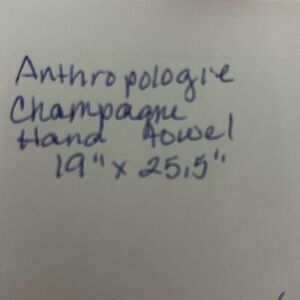 Anthropologie
Champagne
Hand towel
19" x 25.5"